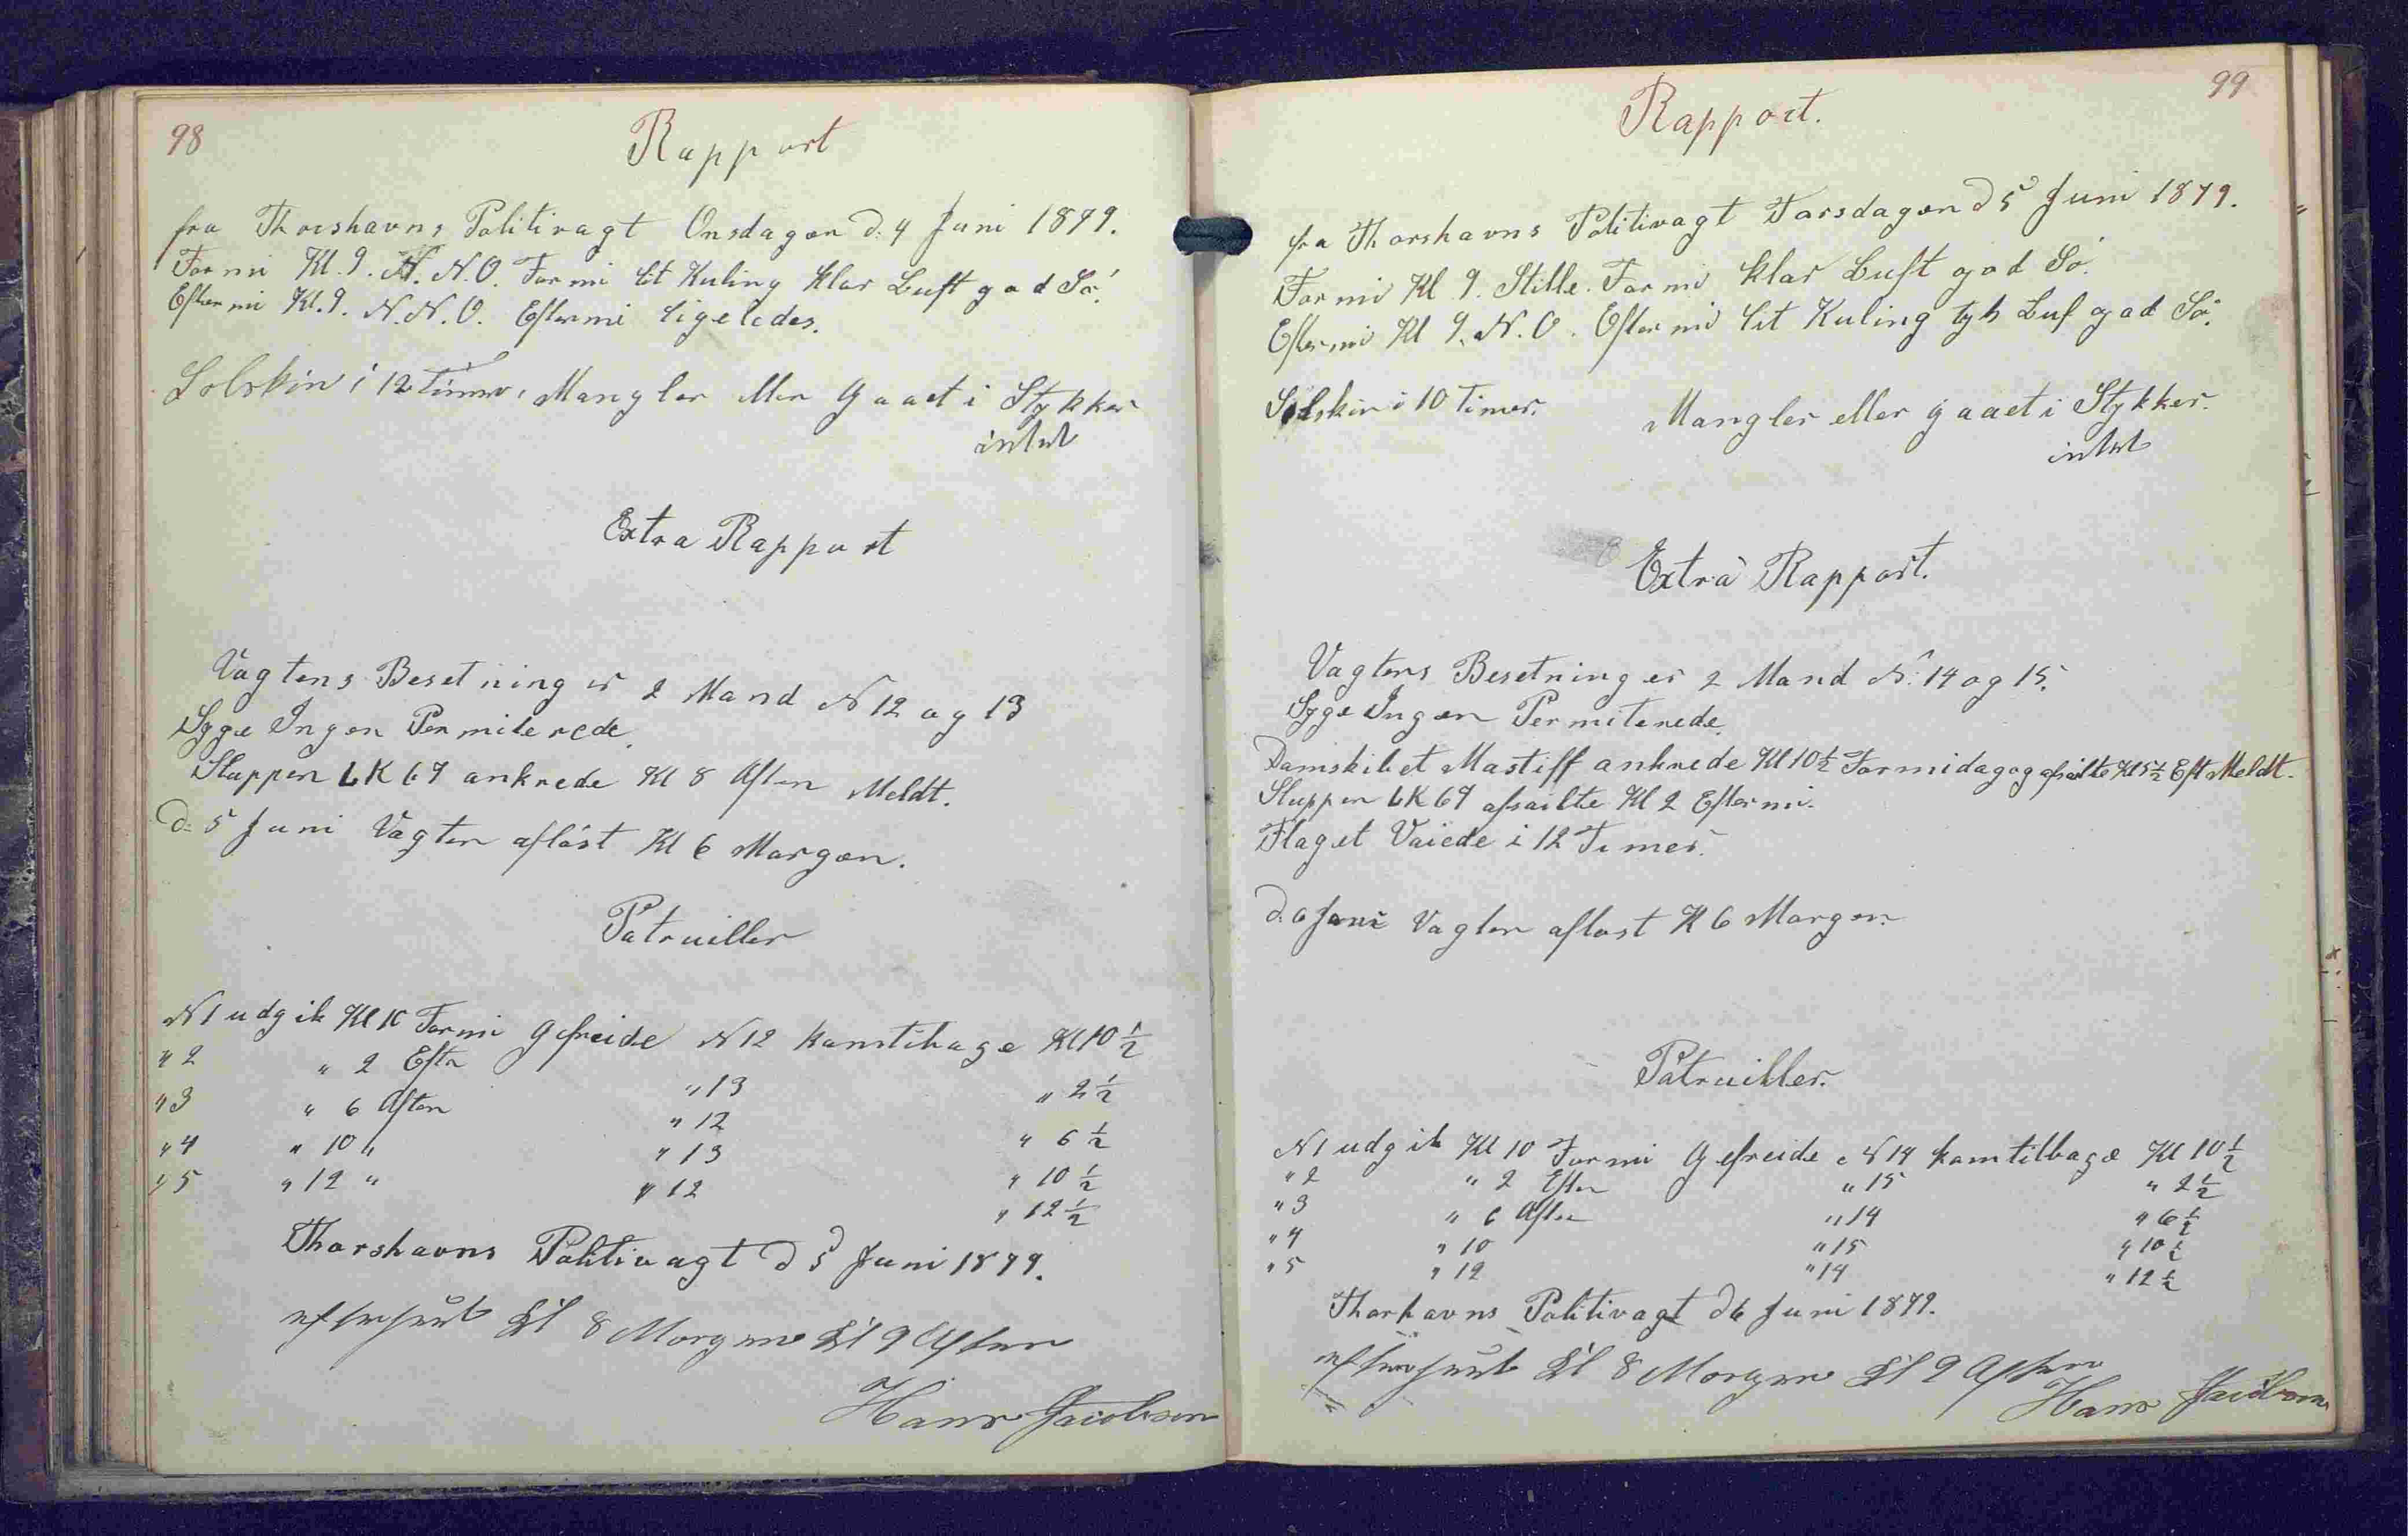 98
Rapport
fra Thorshavns Politivagt Onsdagen d. 4 Juni 1879.
Formi Kl. 9. N. N. O. Formi lit Kuling klar Luft god Sö.
Eftermi Kl. 9. N. N. O. Eftermi ligeledes.
Solskin i 12 Timer, Mangler eller Gaaet i Stykker
intet
Extra Rapport
Vagtens Besetning er 2 Mand N 12 og 13
Syge Ingen Permiterede.
Sluppen LK 67 ankrede Kl 8 Aften Meldt.
d: 5 Juni Vagten aflöst Kl 6 Morgen.
Patruiller
N 1 udgik Kl 10 Formi Gefreide N 12 kamtibage Kl 10 1/2
" 2 " 2 Eftr " 13 " 2 1/2
" 3 " 6 Aften " 12 " 6 1/2
" 4 " 10 " " 13 " 10 1/2
" 5 " 12 " " 12 " 12 1/2
Thorshavns Politivagt d 5 Juni 1879.
efterseet Kl 8 Morgen Kl 9 Aften
Hans Jacobsen
99
Rapport.
fra Thorshavns Politivagt Torsdagen d 5 Juni 1879.
Formi Kl 9. Stille. Formi klar Luft god Sö.
Eftermi Kl 9. N. O. Eftermi lit Kuling tyk Luf god Sö.
Solskin i 10 Timer. Mangler eller gaaet i Stykker.
intet
Extra Rapport.
Vagtens Besetning er 2 Mand N: 14 og 15.
Syge Ingen Permiterede.
Damskibet Mastiff ankrede Kl 10 1/2 Formidag og afsailte Kl 5 1/2 Eft Meldt.
Sluppen LK 67 afsailte Kl 2 Eftermi.
Flaget Vaiede i 12 Timer.
d. 6 Juni Vagten aflöst Kl 6 Morgen.
Patruiller.
N 1 udgik Kl 10 Formi Gefreide N 14 kamtilbage Kl 10 1/2
" 2 " 2 Efter " 15 " 2 1/2
" 3 " 6 Aften " 14 " 6 1/2
" 4 " 10 " 15 " 10 1/2
" 5 " 12 " 14 " 12 1/2
Thorhavns Politivagt d 6 Juni 1879.
efterseet Kl 8 Morgen Kl 9 Aften
Hans Jacobsen